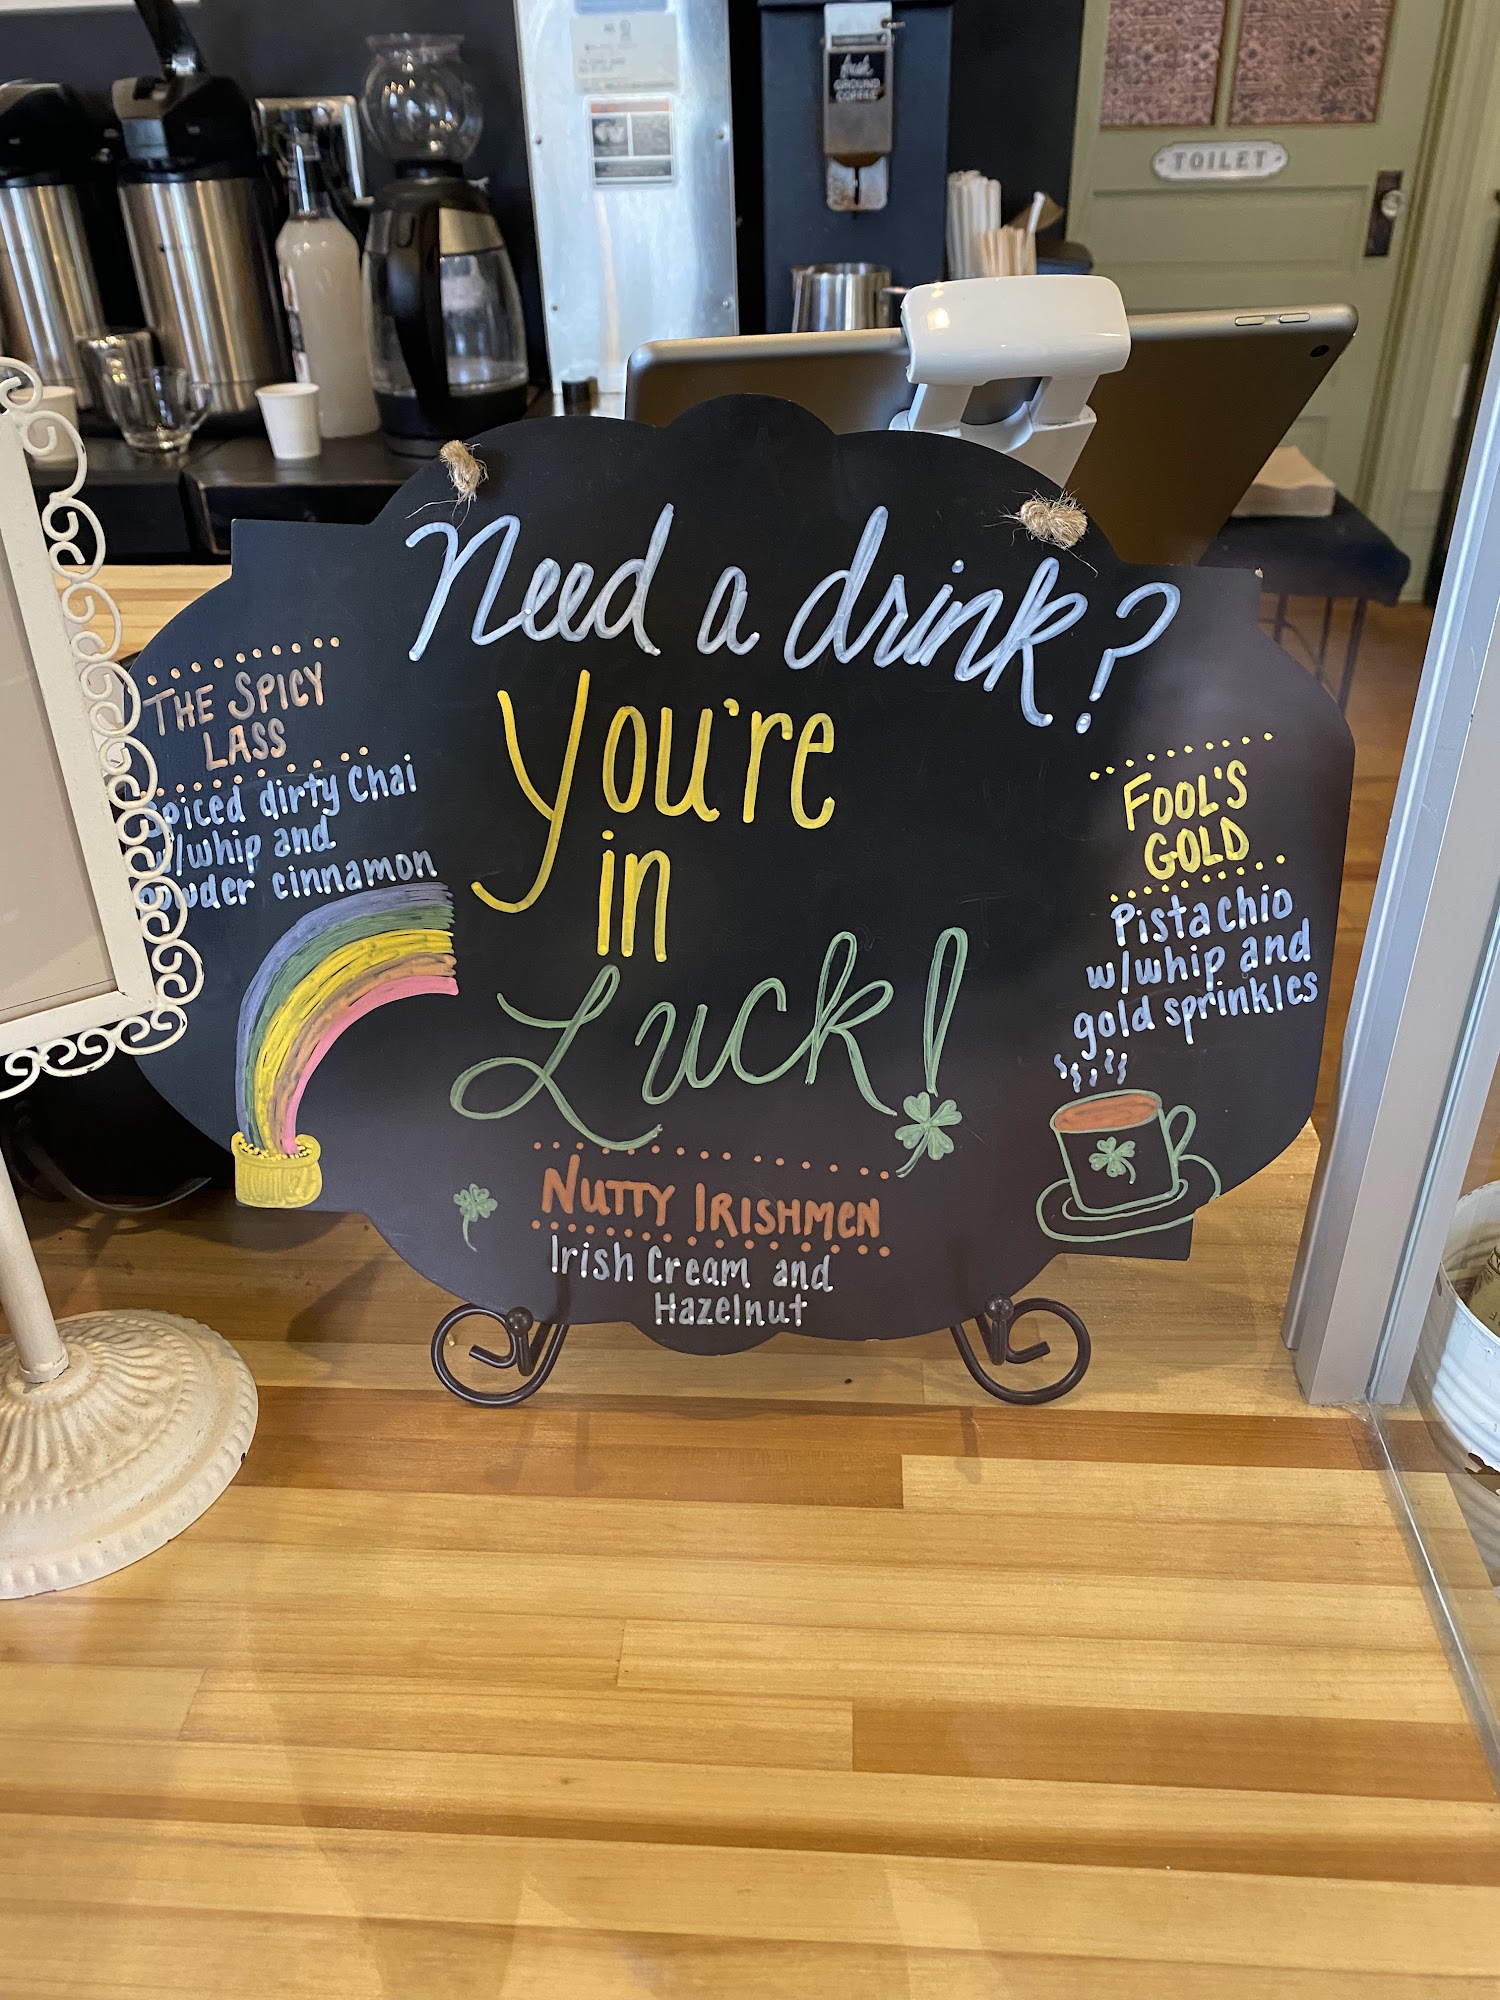 fresh
GROUND
COFFEE
TOILET
Need a drink?
You're
in
Luck!
THE SPICY
LASS
Spiced dirty Chai
w/whip and
powder cinnamon
FOOL'S
GOLD
Pistachio
w/whip and
gold sprinkles
NUTTY IRISHMEN
Irish Cream and
Hazelnut